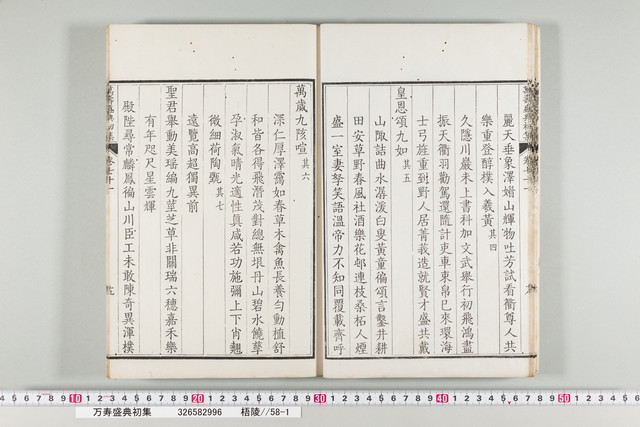 麗天垂象澤媚山輝物吐芳試看衢尊人共
樂重登醇樸入羲黃其四
久隱川巖未上書科加文武舉行初飛鴻盡
振天衢羽勸駕還隨計吏車束帛已來環海
士弓旌重到野人居菁莪造就賢才盛共戴
皇恩頌九如其五
山陬詰曲水潺湲白叟黃童徧頌言鑿井耕
田安草野春風社酒樂花邨連枝桑柘人煙
盛一室妻孥笑語溫帝力不知同覆載齊呼
萬歲九陔喧其六
深仁厚澤靄如春草木禽魚長養勻動植舒
和皆各得飛潛茂對總無垠丹山碧水饒蕚
孕淑氣晴光適性真咸若功施彌上下肖翹
微細荷陶甄其七
遠覽高超獨異前
聖君舉動美瑤編九莖芝草非關瑞六穗嘉禾樂
有年咫尺星雲輝
殿陛尋常麟鳳徧山川臣工未敢陳奇異渾樸
万寿盛典初集 326582996 梧陵//58-1